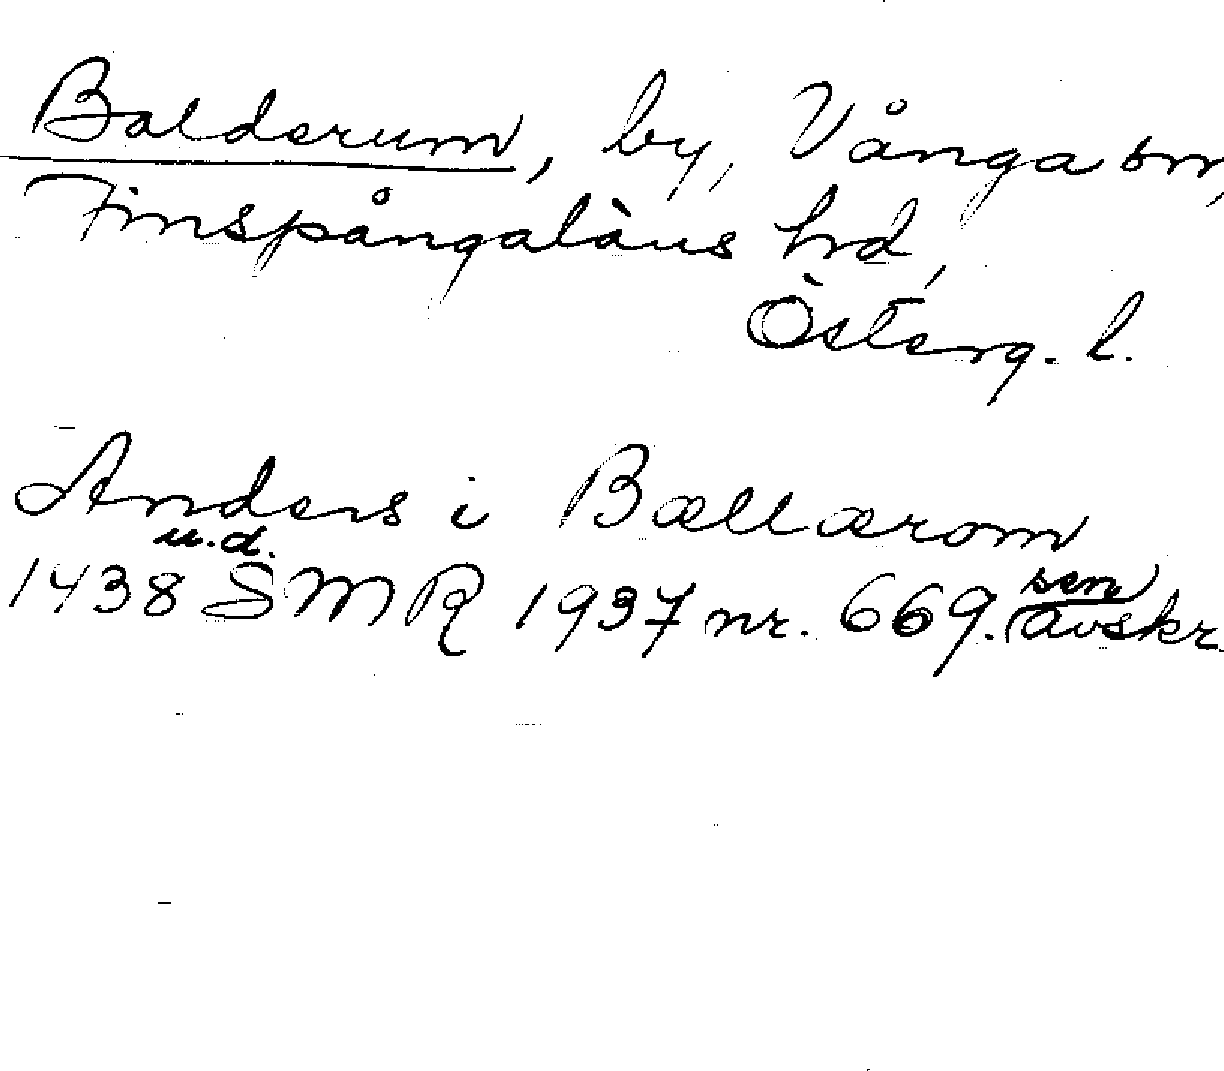 Balderum, by, Vånga sn,
Finspångaläns hd,
Österg. l.
Anders i Ballærom
u.d.
1438 SMR 1937 nr. 669. (sen
avskr.